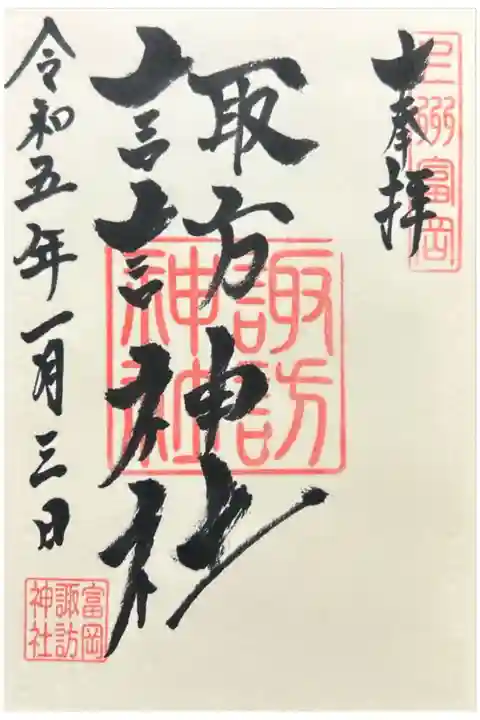 上州富岡
奉拝
諏訪神社
諏訪
神社
令和五年一月三日
富岡
諏訪
神社